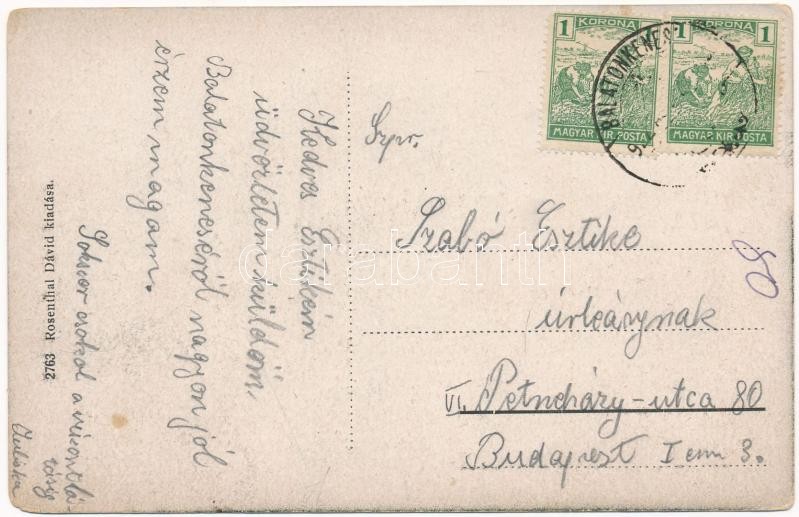 1 KORONA
MAGYAR KIR. POSTA
KORONA 1
MAGYAR KIR. POSTA
BALATONKENES
Kedves Esztikém
üdvözletem küldöm
Balatonkeneséről nagyon jól
érzem magam.
Sokszor csokol a viszontlá-
tásig
Juliska
2763 Rosenthal Dávid kiadása.
Szpr.
Szabó Esztike
úrleánynak
VI. Petneházy-utca 80
Budapest I em 3.
80
darabanth